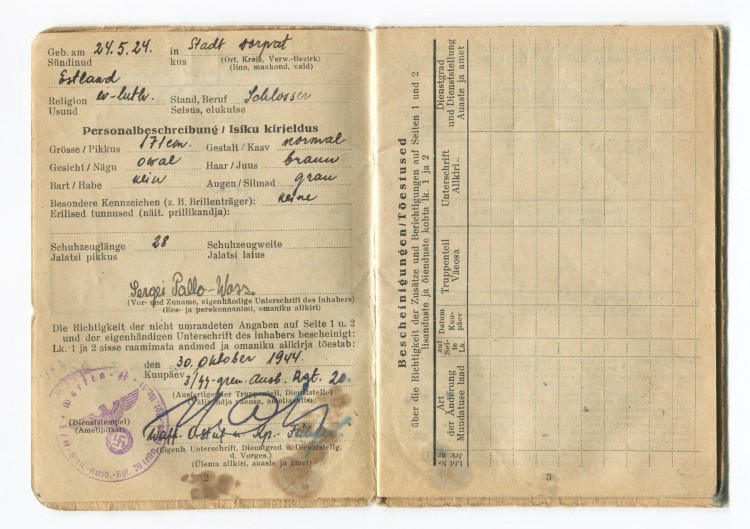 Geb. am 24.5.24. in Stadt Dorpat
Sündinud kus (Ort, Kreis, Verw.-Bezirk)
(linn, maakond, vald)
Estland
Religion ev-luth. Stand, Beruf Schlosser
Usund Seisus, elukutse
Personalbeschreibung / Isiku kirjeldus
Grösse / Pikkus 171cm. Gestalt / Kasv normal
Gesicht / Nägu oval Haar / Juus braun
Bart / Habe kein Augen / Silmad grau
Besondere Kennzeichen (z. B. Brillenträger): keine
Erilised tunnused (näit. prillikandja):
Schuhzeuglänge 28 Schuhzeugweite
Jalatsi pikkus Jalatsi laius
Sergei Pallo-Woss.
(Vor- und Zuname, eigenhändige Unterschrift des Inhabers)
(Ees- ja perekonnanimi, omaniku allkiri)
Die Richtigkeit der nicht umrandeten Angaben auf Seite 1 u. 2
und der eigenhändigen Unterschrift des Inhabers bescheinigt:
Lk. 1 ja 2 sisse raamimata andmed ja omaniku allkirja tõestab:
den 30. Oktober 1944.
Kuupäev
3/ϟϟ-gren. Ausb. Rgt. 20.
(Ausfertigender Truppenteil, Dienststelle)
(Dienststempel)
(Ametipitsat)
(Eigenh. Unterschrift, Dienstgrad u. Dienststellg.
d. Vorges.)
(Ülema allkiri, auaste ja amet)
2
Bescheinigungen/Tõestused
über die Richtigkeit der Zusätze und Berichtigungen auf Seiten 1 und 2
lisanduste ja õienduste kohta lk. 1 ja 2
Lfd Nr
Jrk. nr
Art
der Änderung
Muudatuse laad
auf
Sei-
te
Lk
Datum
Kuu-
päev
Truppenteil
Väeosa
Unterschrift
Allkiri
Dienstgrad
und Dienststellung
Auaste ja amet
3